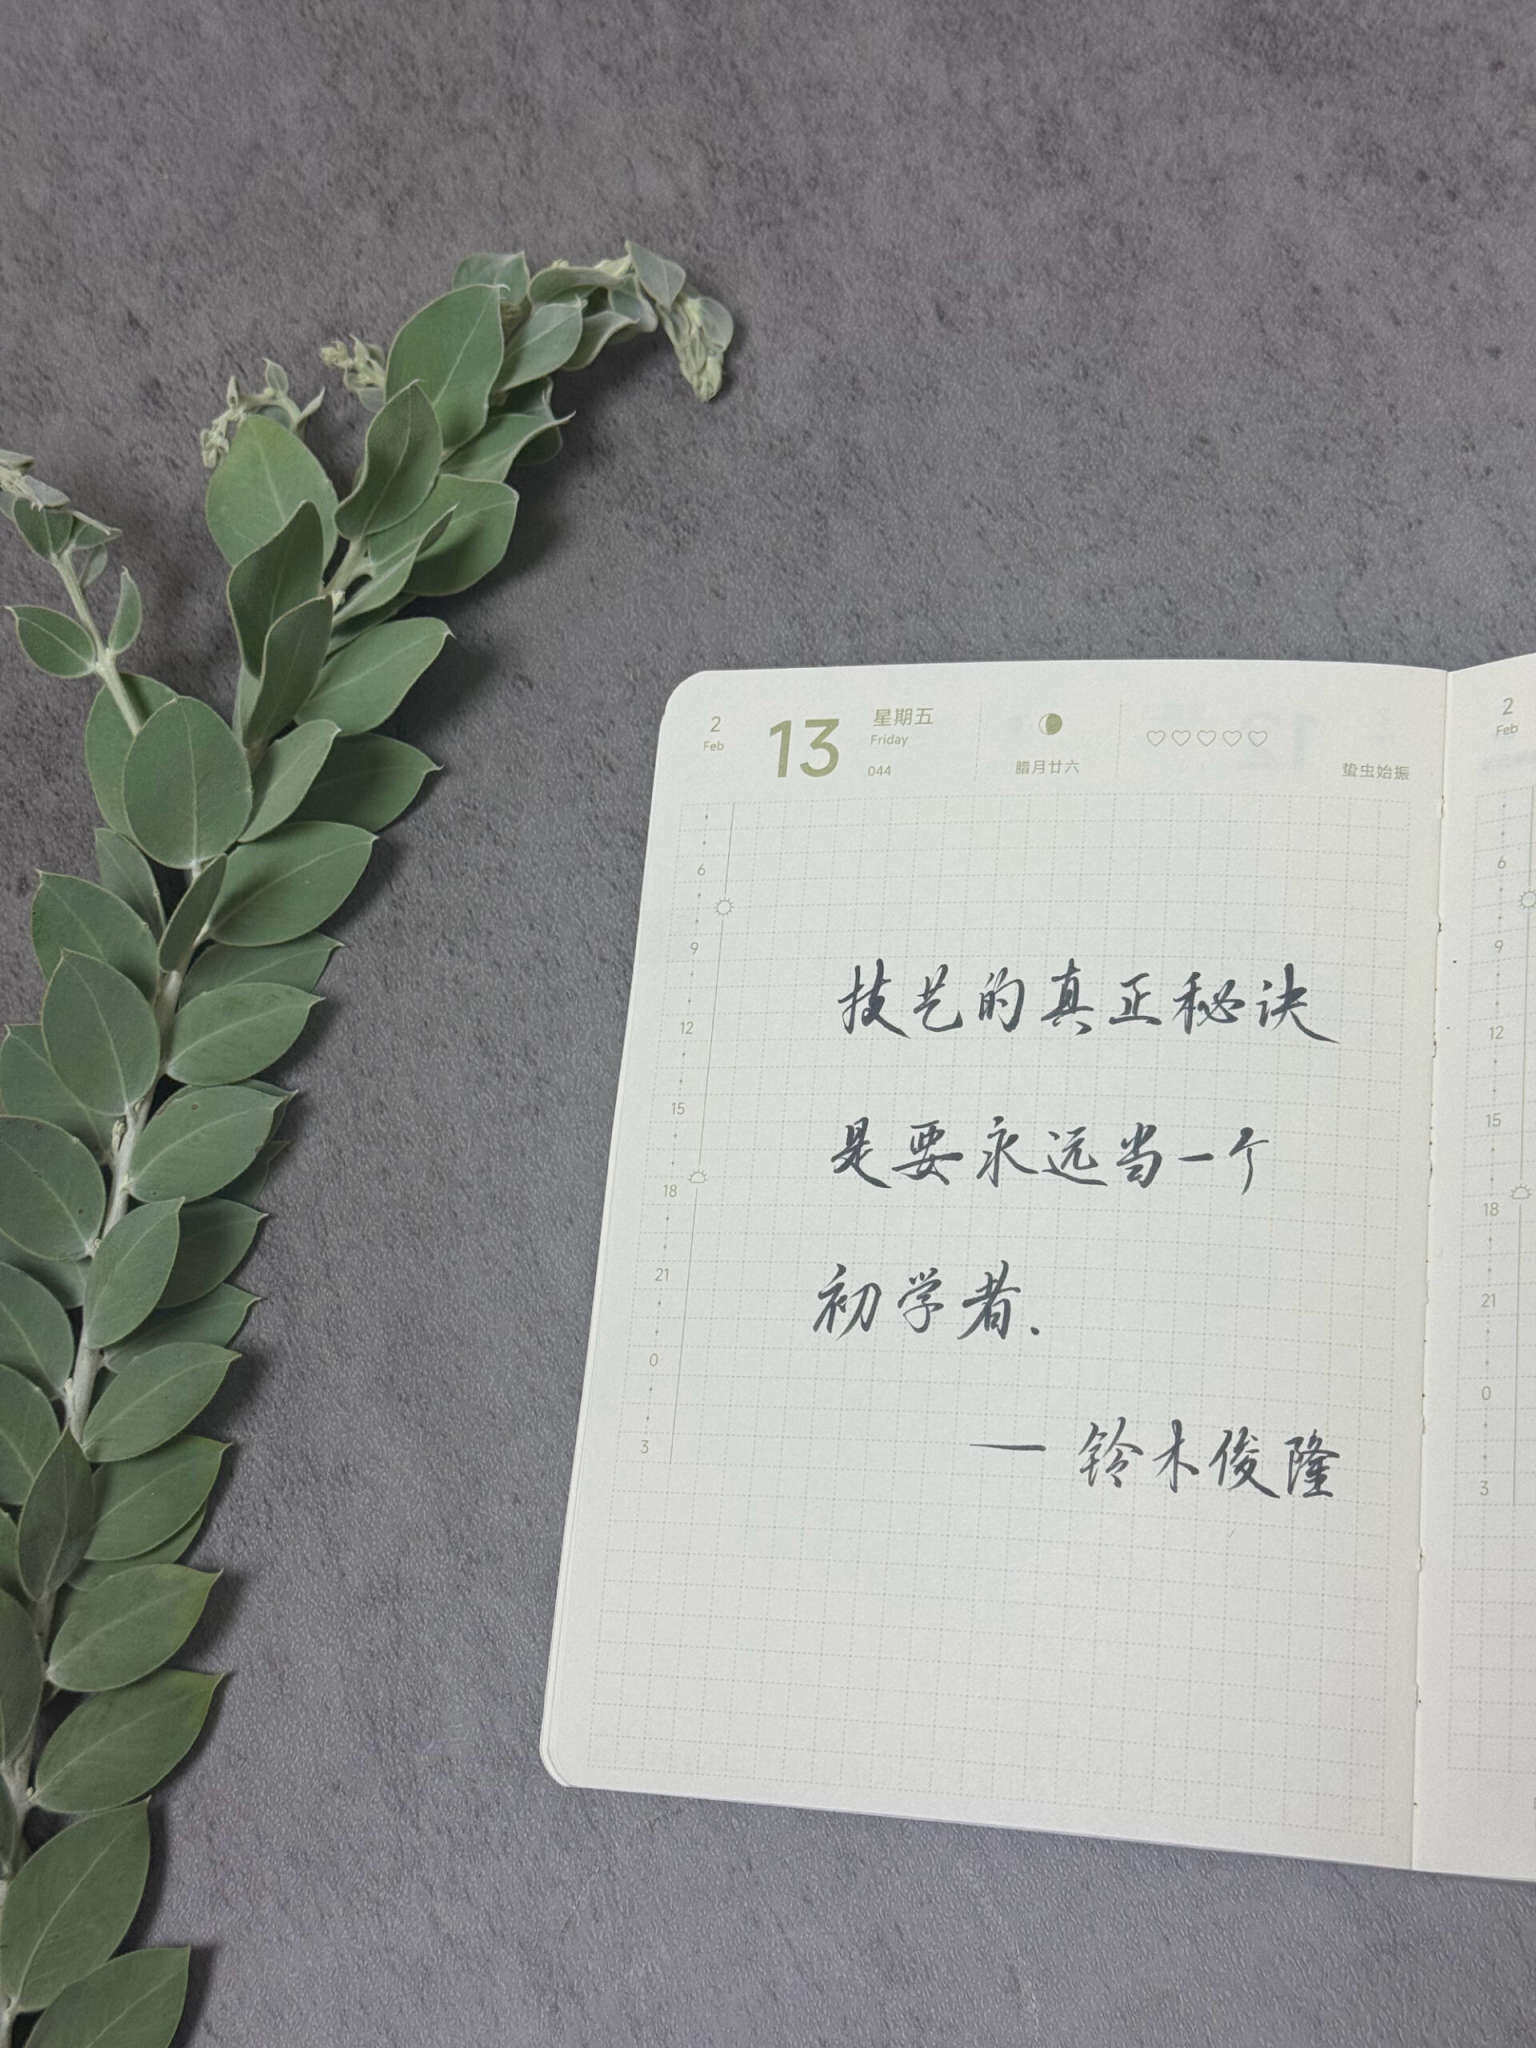 2
Feb
13
星期五
Friday
044
腊月廿六
蛰虫始振
6
9
12
15
18
21
0
3
技艺的真正秘诀
是要永远当一个
初学者.
— 铃木俊隆
2
Feb
6
9
12
15
18
21
0
3